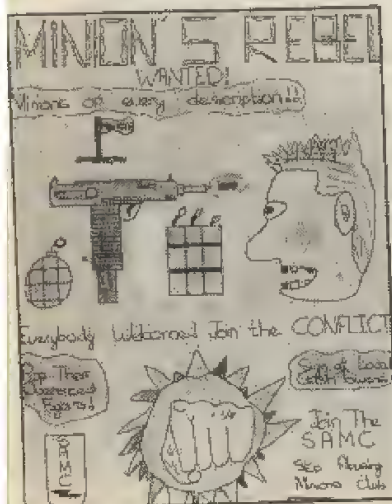 MINION'S REBEL
WANTED!
Minions of every description!!
Everybody Welcomed Join the CONFLICT
Pop Their
Egos!
Sign of
Join The
SAMC
SAMC
Minions Club